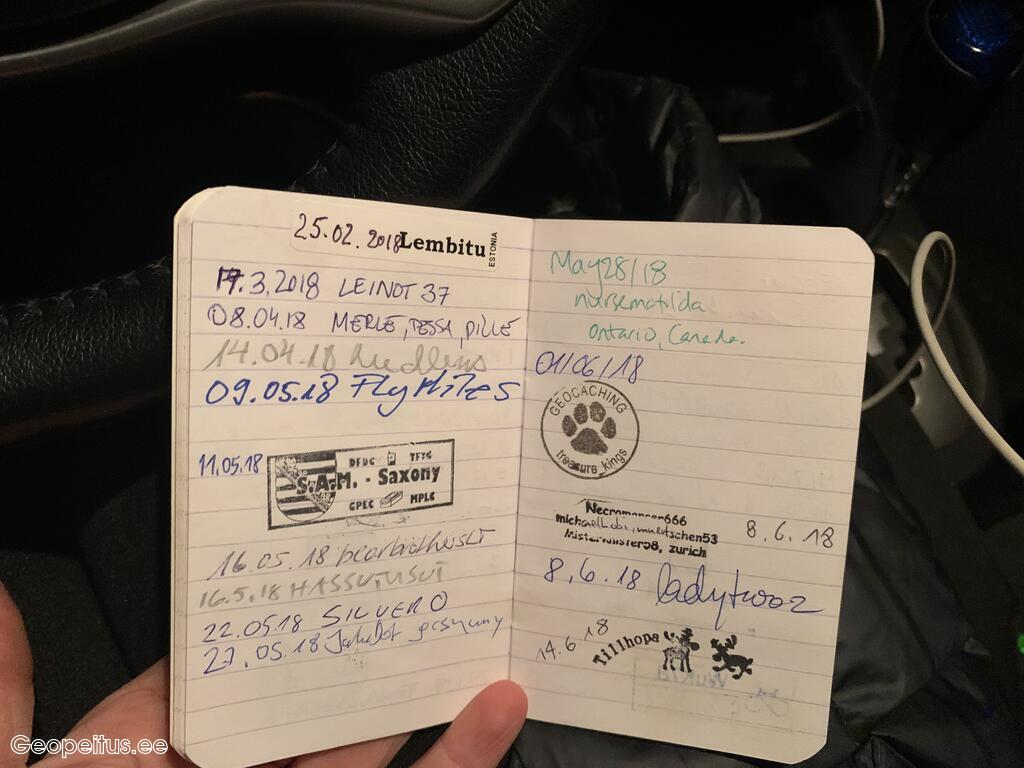 25.02.2018 Lembitu ESTONIA
17.3.2018 LEINOT 37
08.04.18 MERLE, TESSA, PILLE
14.04.18
09.05.18 FlyHiTES
11.05.18
DFDG TFTG
S.A.M. - Saxony
GPEC MPLC
16.05.18
16.5.18 HASSUTUSUT
22.05.18 SILVERO
27.05.18
May 28/18
nursematilda
Ontario, Canada.
01/06/18
GEOCACHING
treasure kings
Necromancer666
zurich
8.6.18
8.6.18 ladytwoz
14.6.18 Tillhopa
Geopeitus.ee